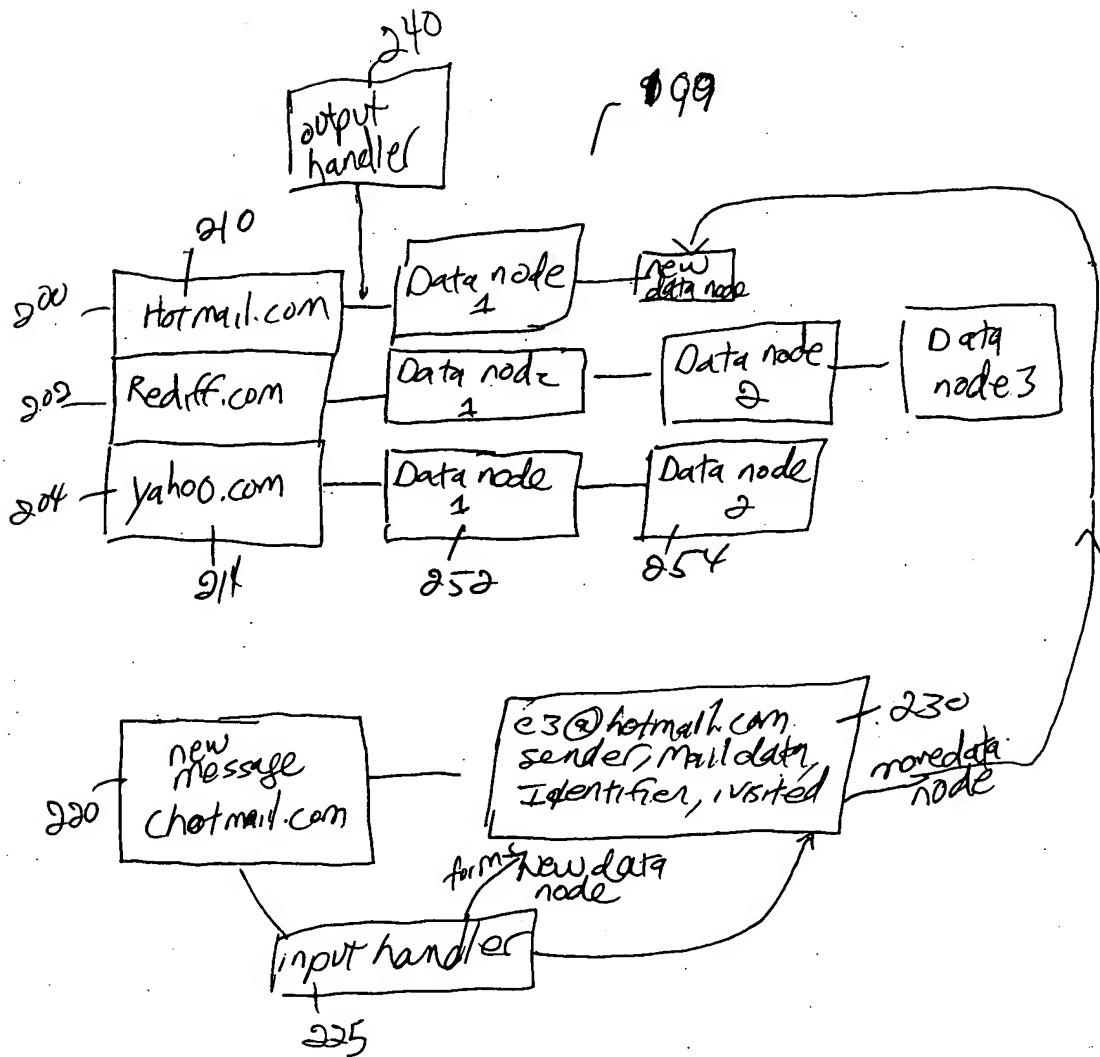 240
output
handler
199
210
200
Hotmail.com
Data node
1
new
data node
202
Rediff.com
Data node
1
Data node
2
Data
node 3
204
yahoo.com
Data node
1
Data node
2
214
252
254
220
new
message
chotmail.com
e3@hotmail.com
sender, Mail data,
Identifier, ivisited
230
move data
node
forms
New data
node
input handler
225